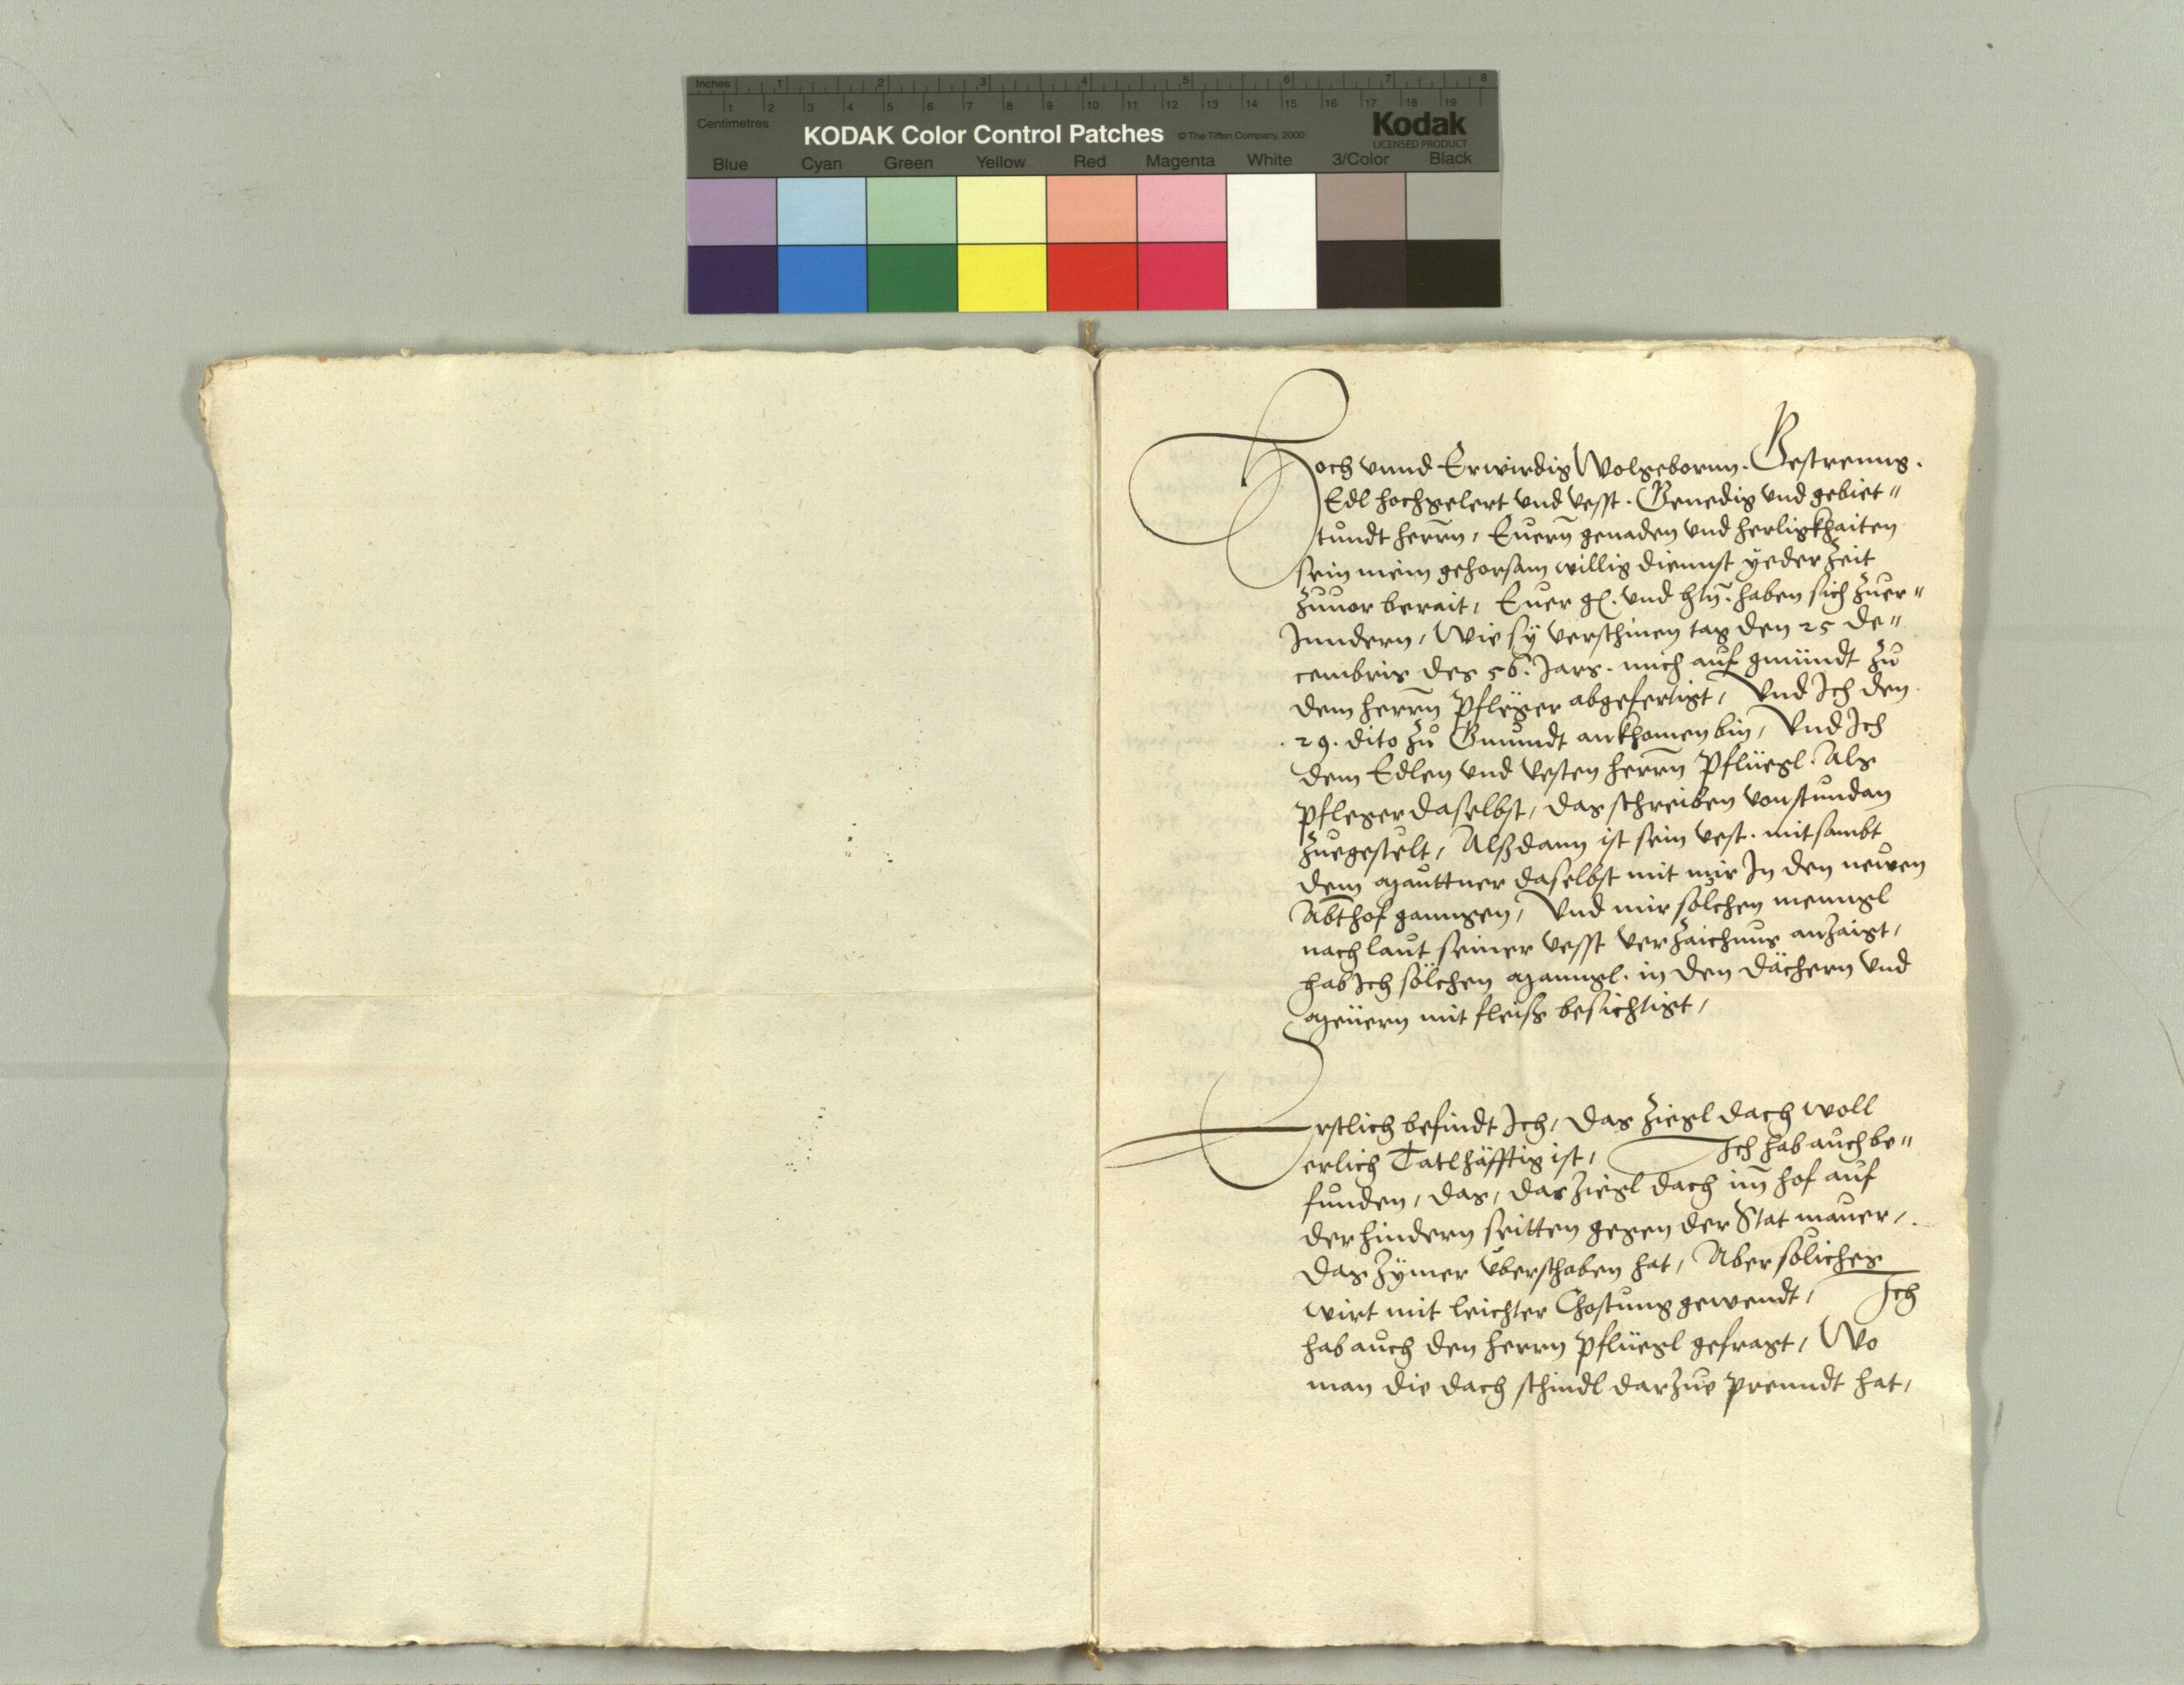 Inches 1 2 3 4 5 6 7 8
1 2 3 4 5 6 7 8 9 10 11 12 13 14 15 16 17 18 19
Centimetres
KODAK Color Control Patches © The Tiffen Company, 2000 Kodak
LICENSED PRODUCT
Blue Cyan Green Yellow Red Magenta White 3/Color Black
Hoch vnnd Erwirdig Wolgebornn. Gestrenng.
Edl hochgelert vnd vesst. Genedig vnd gebiet„
tundt herrn, Euern genaden vnd herligkhaiten
sein mein gehorsam willig diennst yeder Zeit
Zuuor berait, Euer g. vnd hn. haben sich Zuer„
Jnndern, Wie sy verschinen tag den 25 De„
cembris des 56. Jars. mich auf gmündt zu
dem herrn Pfleger abgefertigt, Vnd Jch den
.29. dito zu Gmundt ankhomen bin, Vnd Jch
dem Edlen vnd Vesten herrn Pflüegl. Als
Pfleger daselbst, das schreiben von stundan
Zuegestelt, Alßdann ist sein vest. mitsambt
dem Mauttner daselbst mit mir Jn den newen
Abthof ganngen, Vnd mir solchen menngl
nach laut seiner vesst verzaichnus anzaigt,
hab Jch solchen Manngl. in den dächern vnd
Meüern mit fleiss besichtigt,
Erstlich befindt Jch, das Ziegl dach woll
erlich Tatlhäfftig ist, Jch hab auch be„
funden, das, das Ziegl dach im hof auf
der hindern seitten gegen der Stat mauer,
das Zymer überschoben hat, Aber soliches
wirt mit leichter Chostung gewendt, Jch
hab auch den herrn Pflüegl gefragt, Wo
man die dach schindl darzue prenndt hat,